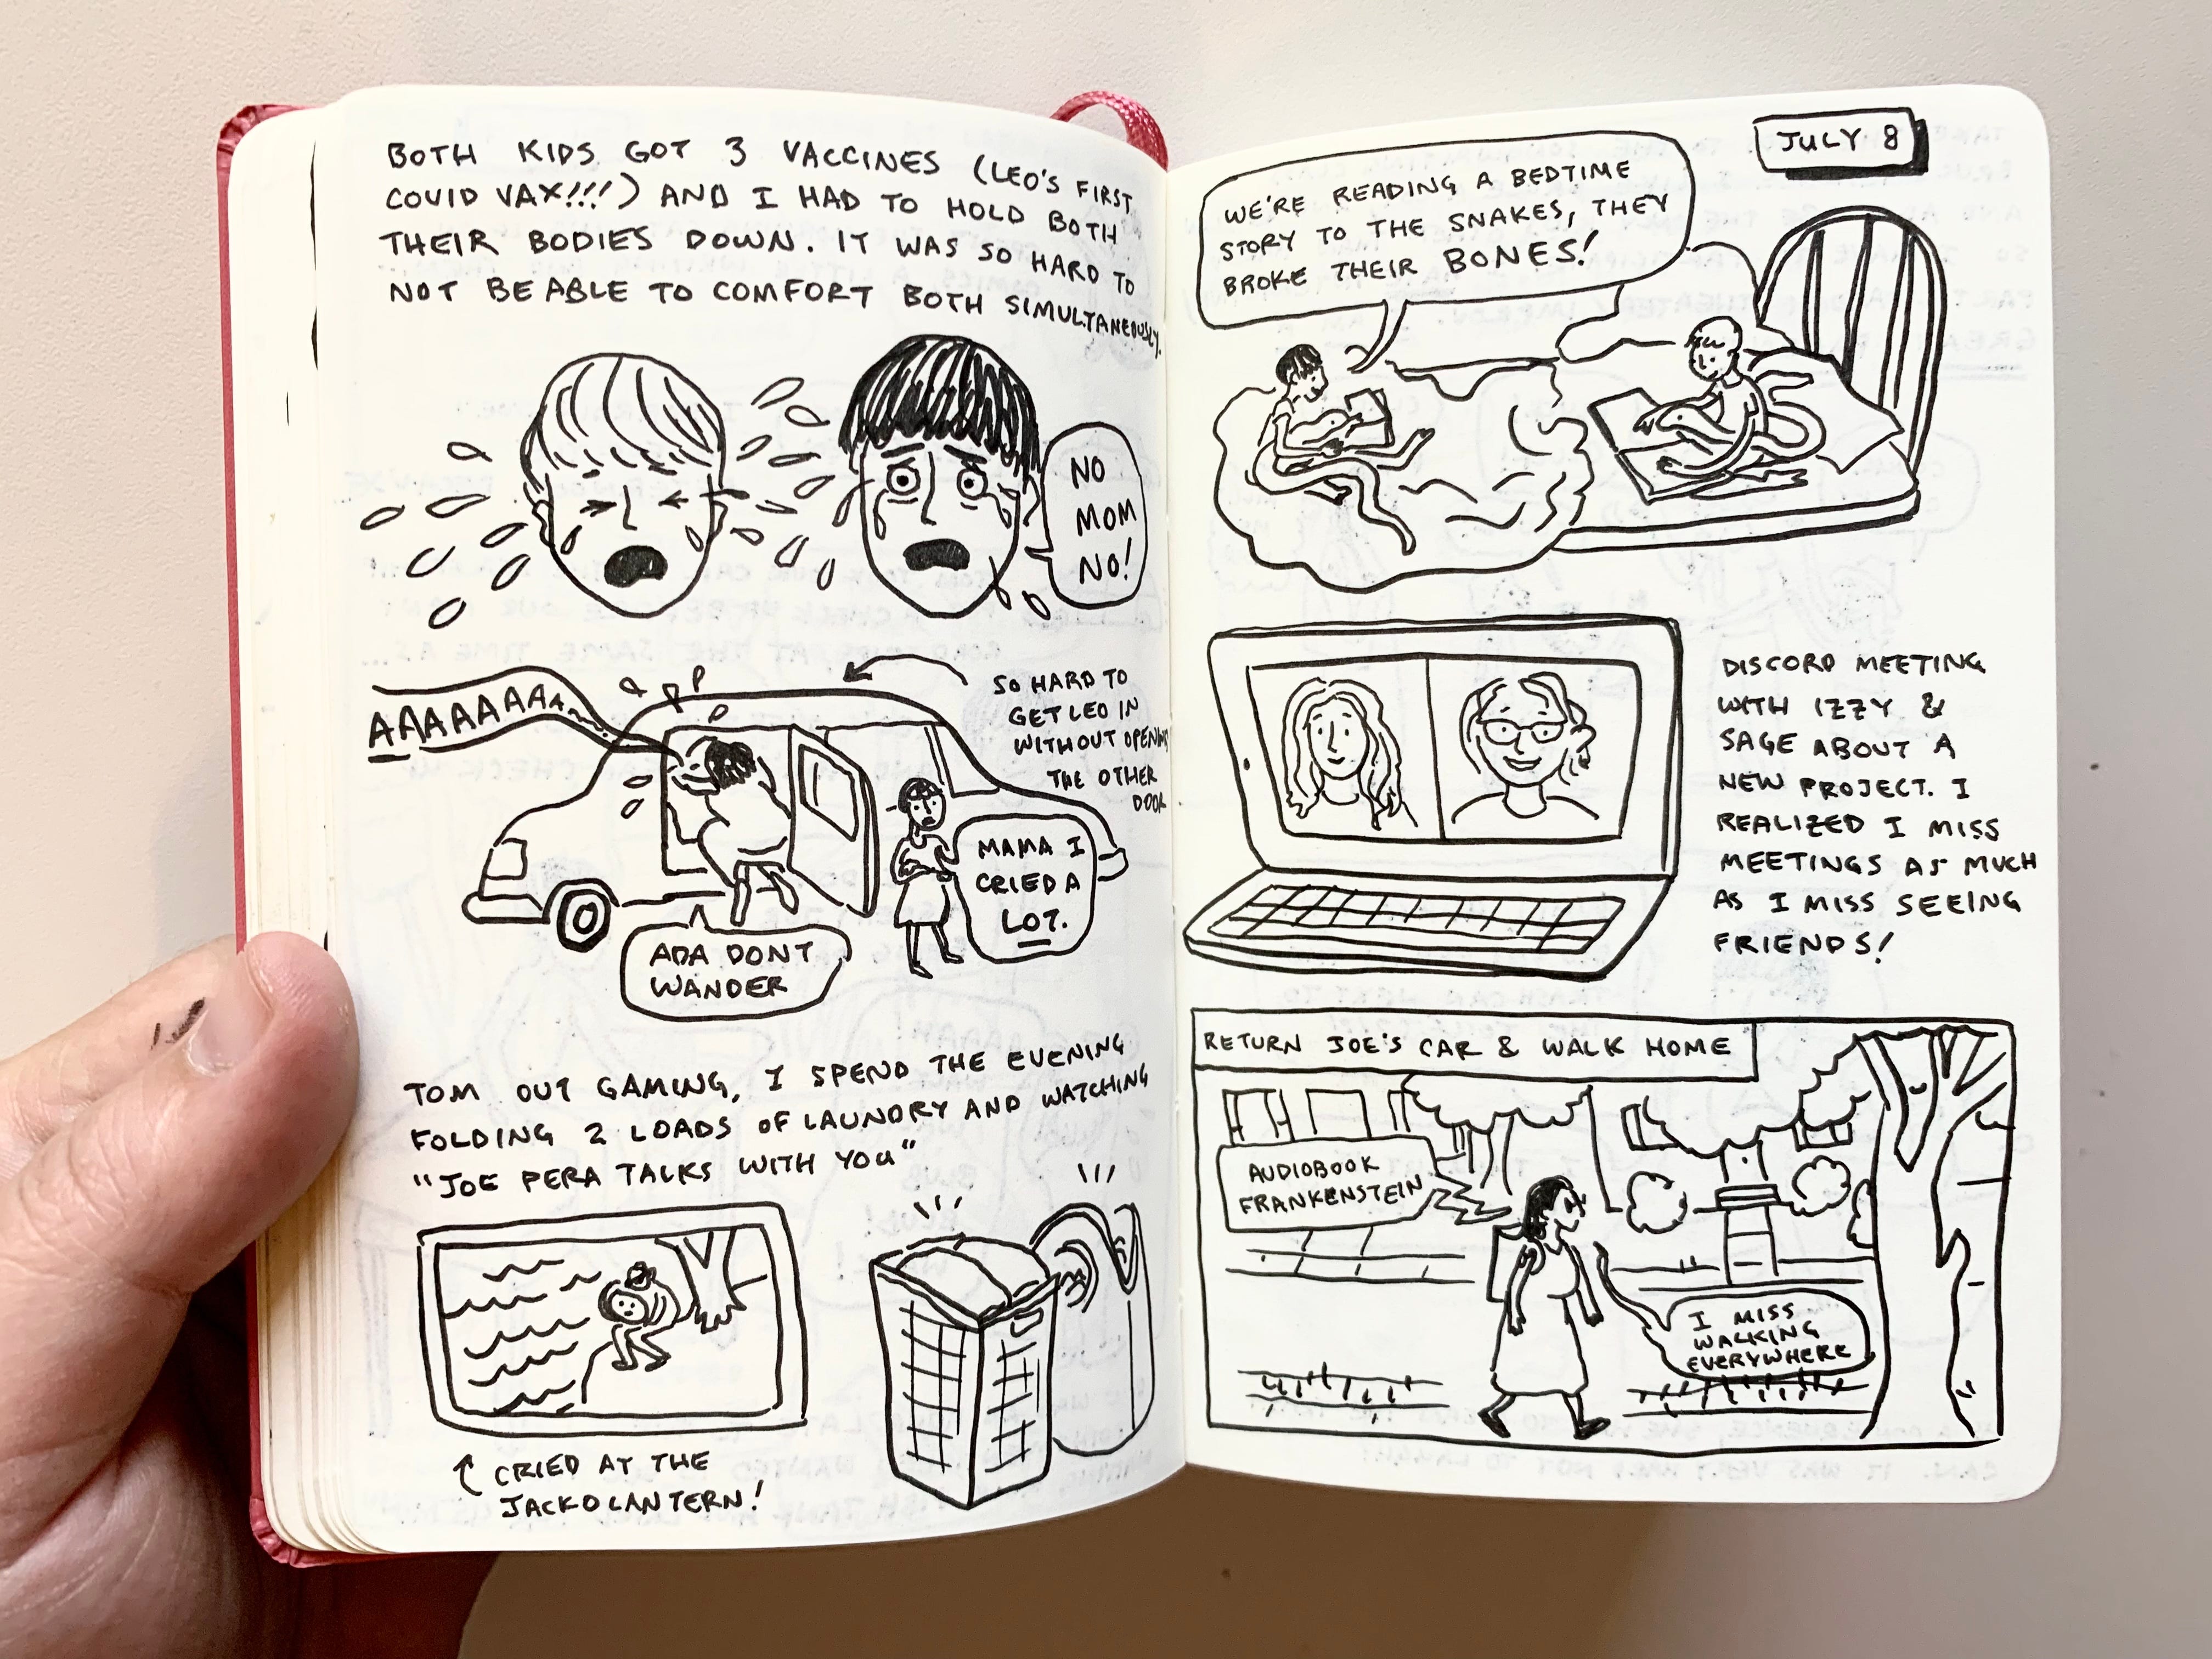 BOTH KIDS GOT 3 VACCINES (LEO'S FIRST
COVID VAX!!!) AND I HAD TO HOLD BOTH
THEIR BODIES DOWN. IT WAS SO HARD TO
NOT BE ABLE TO COMFORT BOTH SIMULTANEOUSLY.
NO
MOM
NO!
AAAAAAAAA
SO HARD TO
GET LEO IN
WITHOUT OPENING
THE OTHER
DOOR
MAMA I
CRIED A
LOT.
ADA DONT
WANDER
TOM OUT GAMING, I SPEND THE EVENING
FOLDING 2 LOADS OF LAUNDRY AND WATCHING
"JOE PERA TALKS WITH YOU"
CRIED AT THE
JACKOLANTERN!
JULY 8
WE'RE READING A BEDTIME
STORY TO THE SNAKES, THEY
BROKE THEIR BONES!
DISCORD MEETING
WITH IZZY &
SAGE ABOUT A
NEW PROJECT. I
REALIZED I MISS
MEETINGS AS MUCH
AS I MISS SEEING
FRIENDS!
RETURN JOE'S CAR & WALK HOME
AUDIOBOOK
FRANKENSTEIN
I MISS
WALKING
EVERYWHERE